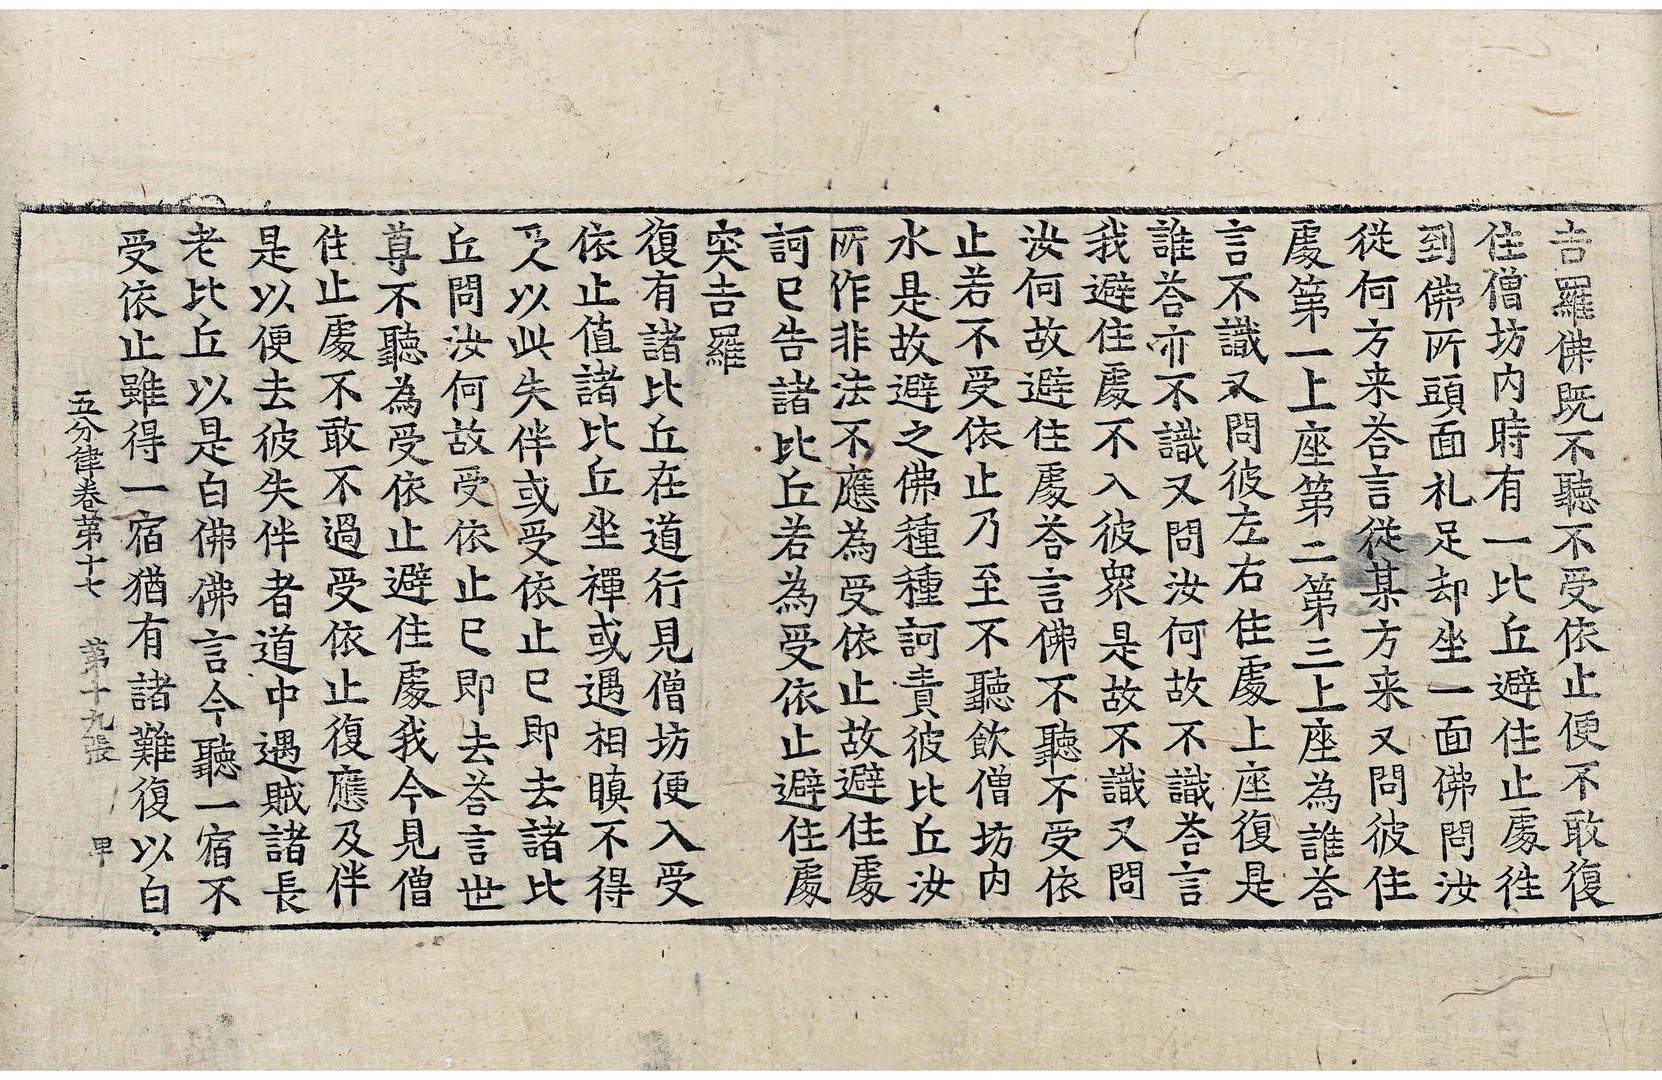 吉羅佛既不聽不受依止便不敢復
住僧坊内時有一比丘避住止䖏徃
到佛所頭面礼足却坐一面佛問汝
從何方来荅言從某方来又問彼住
䖏第一上座第二第三上座為誰荅
言不識又問彼左右住䖏上座復是
誰荅亦不識又問汝何故不識荅言
我避住䖏不入彼衆是故不識又問
汝何故避住䖏荅言佛不聽不受依
止若不受依止乃至不聽飲僧坊内
水是故避之佛種種訶責彼比丘汝
所作非法不應為受依止故避住䖏
訶已告諸比丘若為受依止避住䖏
突吉羅
復有諸比丘在道行見僧坊便入受
依止值諸比丘坐禪或遇相瞋不得
受以此失伴或受依止已即去諸比
丘問汝何故受依止已即去荅言世
尊不聽為受依止避住䖏我今見僧
住止䖏不敢不過受依止復應及伴
是以便去彼失伴者道中遇賊諸長
老比丘以是白佛佛言今聽一宿不
受依止雖得一宿猶有諸難復以白
五分律卷第十七　第十九張　甲